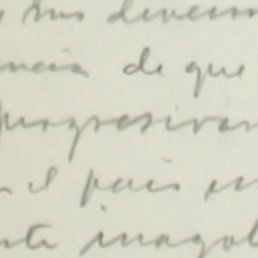 sus diversas
ncia de que
progresivam
n el país un
nte inagot